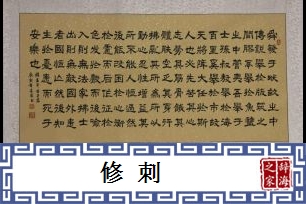 舜發于畎畝之中
傅說舉於版築之
間膠鬲舉於魚鹽
之中管夷吾舉於
士孫叔敖舉於海
百里奚舉於市故
天將降大任於斯
人也必先苦其心
志勞其筋骨餓其
體膚空乏其身行
拂亂其所為所以
動心忍性增益其
所不能人恒過然
後能改困於心衡
於慮而後作徵於
色發於聲而後喻
入則無法家拂士
出則無敵國外患
者國恒亡然後知
生於憂患而死于
安樂也
修刺
辞海之家